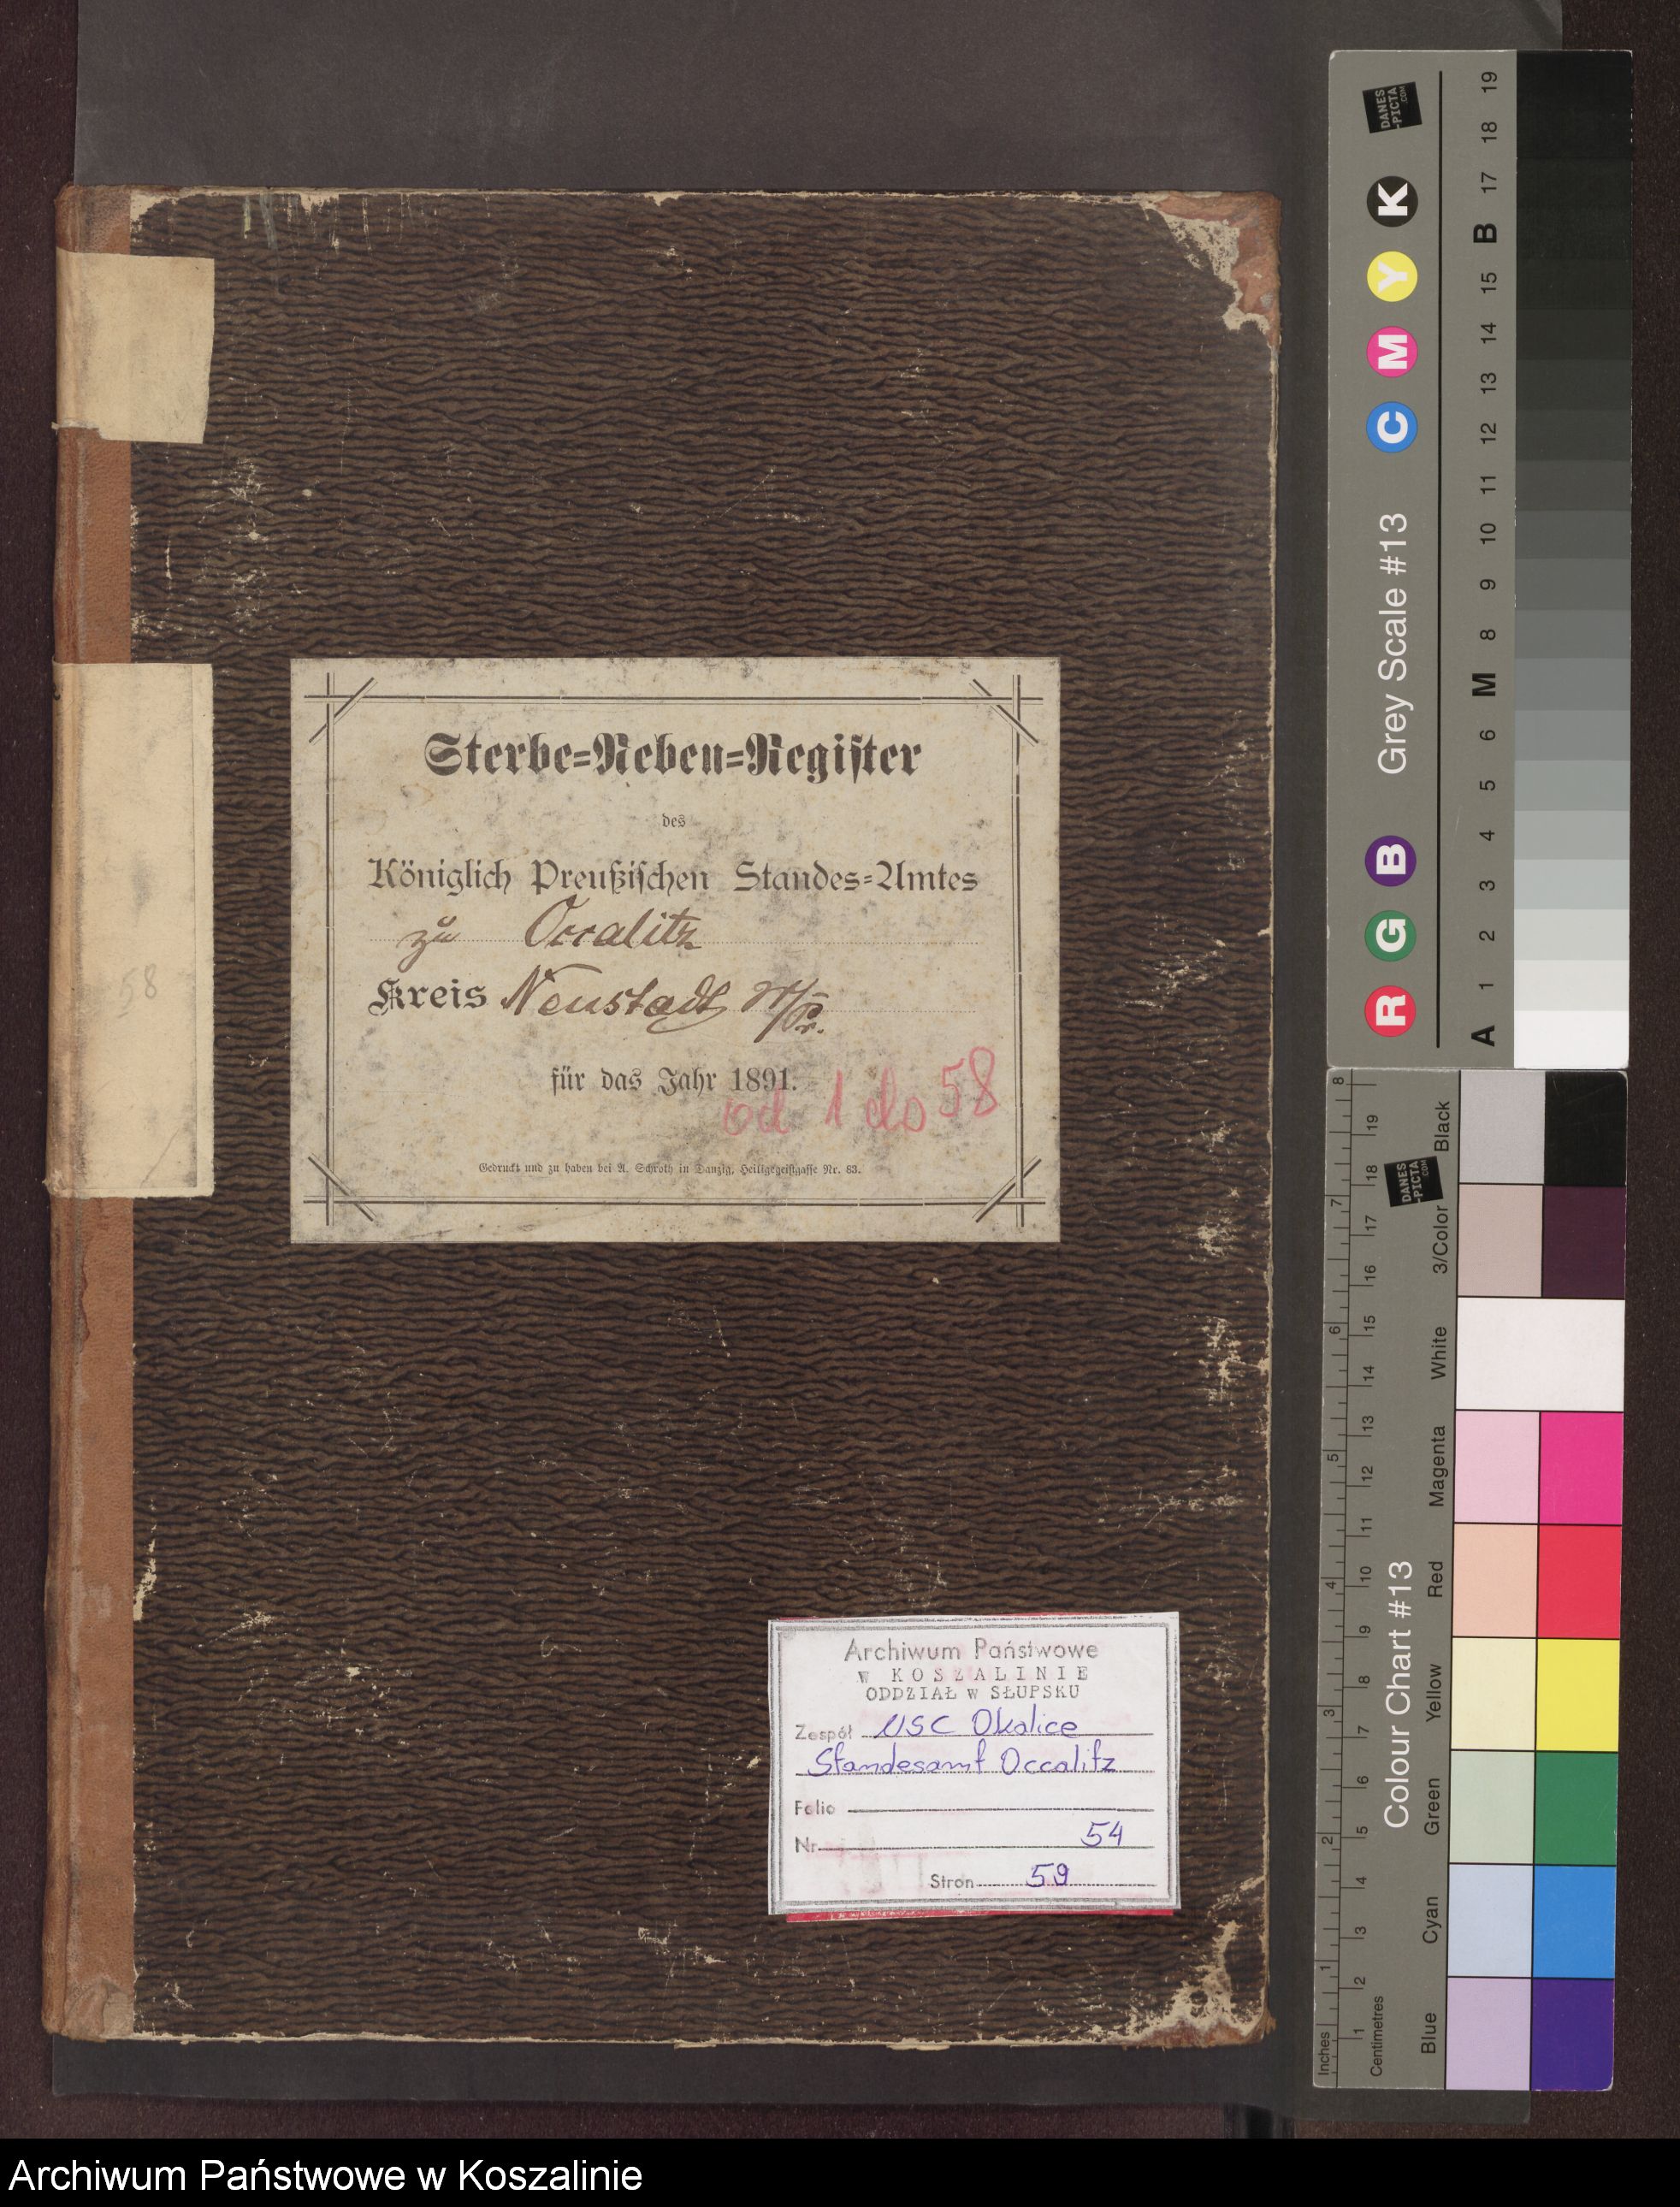 58
Sterbe=Neben=Register
des
Königlich Preußischen Standes=Amtes
zu Occalitz
Kreis Neustadt W/Pr.
für das Jahr 1891.
od 1 do 58
Gedruckt und zu haben bei A. Schroth in Danzig, Heiligegeistgasse Nr. 83.
Archiwum Państwowe
w KOSZALINIE
ODDZIAŁ w SŁUPSKU
Zespół USC Okalice
Standesamt Occalitz
Folio
Nr. 54
Stron 59
DANES
-PICTA
.COM
R G B Grey Scale #13 C M Y K
A 1 2 3 4 5 6 M 8 9 10 11 12 13 14 15 B 17 18 19
Colour Chart #13
DANES
-PICTA
.COM
Blue Cyan Green Yellow Red Magenta White 3/Color Black
Inches 1 2 3 4 5 6 7 8
Centimetres 1 2 3 4 5 6 7 8 9 10 11 12 13 14 15 16 17 18 19
Archiwum Państwowe w Koszalinie